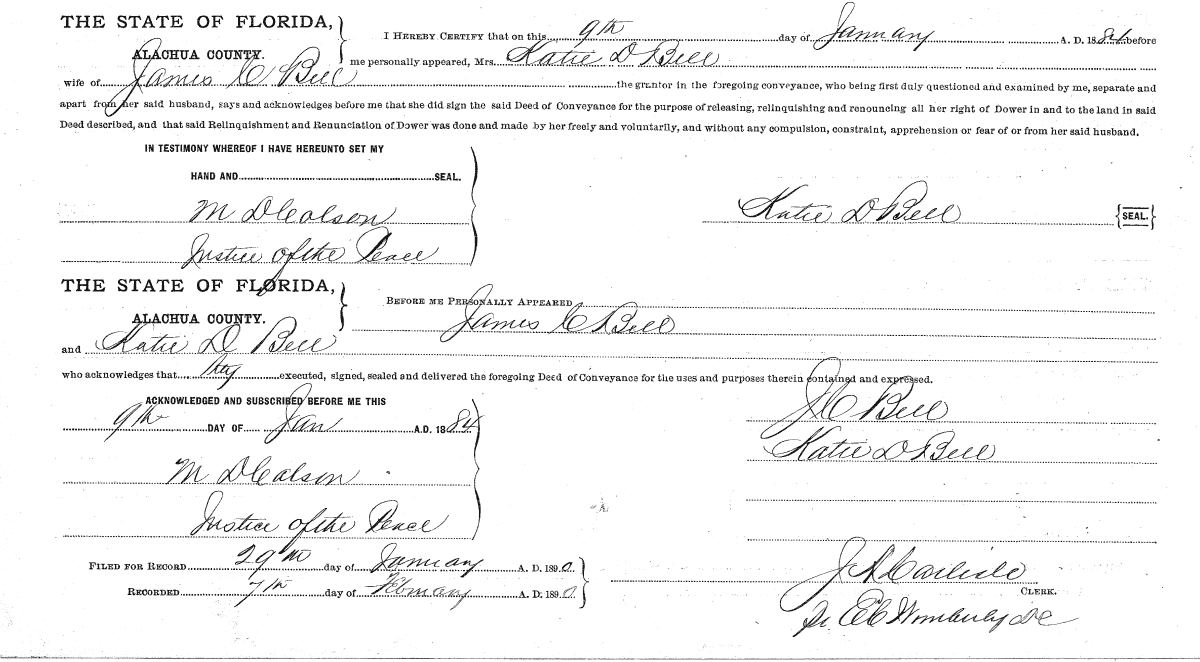 THE STATE OF FLORIDA,
ALACHUA COUNTY.
I HEREBY CERTIFY that on this 9th day of January A. D. 1884 before
me personally appeared, Mrs. Katie D Bell
wife of James C Bell the grantor in the foregoing conveyance, who being first duly questioned and examined by me, separate and
apart from her said husband, says and acknowledges before me that she did sign the said Deed of Conveyance for the purpose of releasing, relinquishing and renouncing all her right of Dower in and to the land in said
Deed described, and that said Relinquishment and Renunciation of Dower was done and made by her freely and voluntarily, and without any compulsion, constraint, apprehension or fear of or from her said husband.
IN TESTIMONY WHEREOF I HAVE HEREUNTO SET MY
HAND AND SEAL.
M D Colson
Katie D Bell {SEAL.}
Justice of the Peace
THE STATE OF FLORIDA,
ALACHUA COUNTY.
BEFORE ME PERSONALLY APPEARED
James C Bell
and Katie D Bell
who acknowledges that they executed, signed, sealed and delivered the foregoing Deed of Conveyance for the uses and purposes therein contained and expressed.
ACKNOWLEDGED AND SUBSCRIBED BEFORE ME THIS
9th DAY OF Jan A.D. 1884
J C Bell
Katie D Bell
M D Colson
Justice of the Peace
FILED FOR RECORD 29th day of January A. D. 1890.
RECORDED 7th day of February A. D. 1890.
J A Carlisle
CLERK.
Wimberly DC